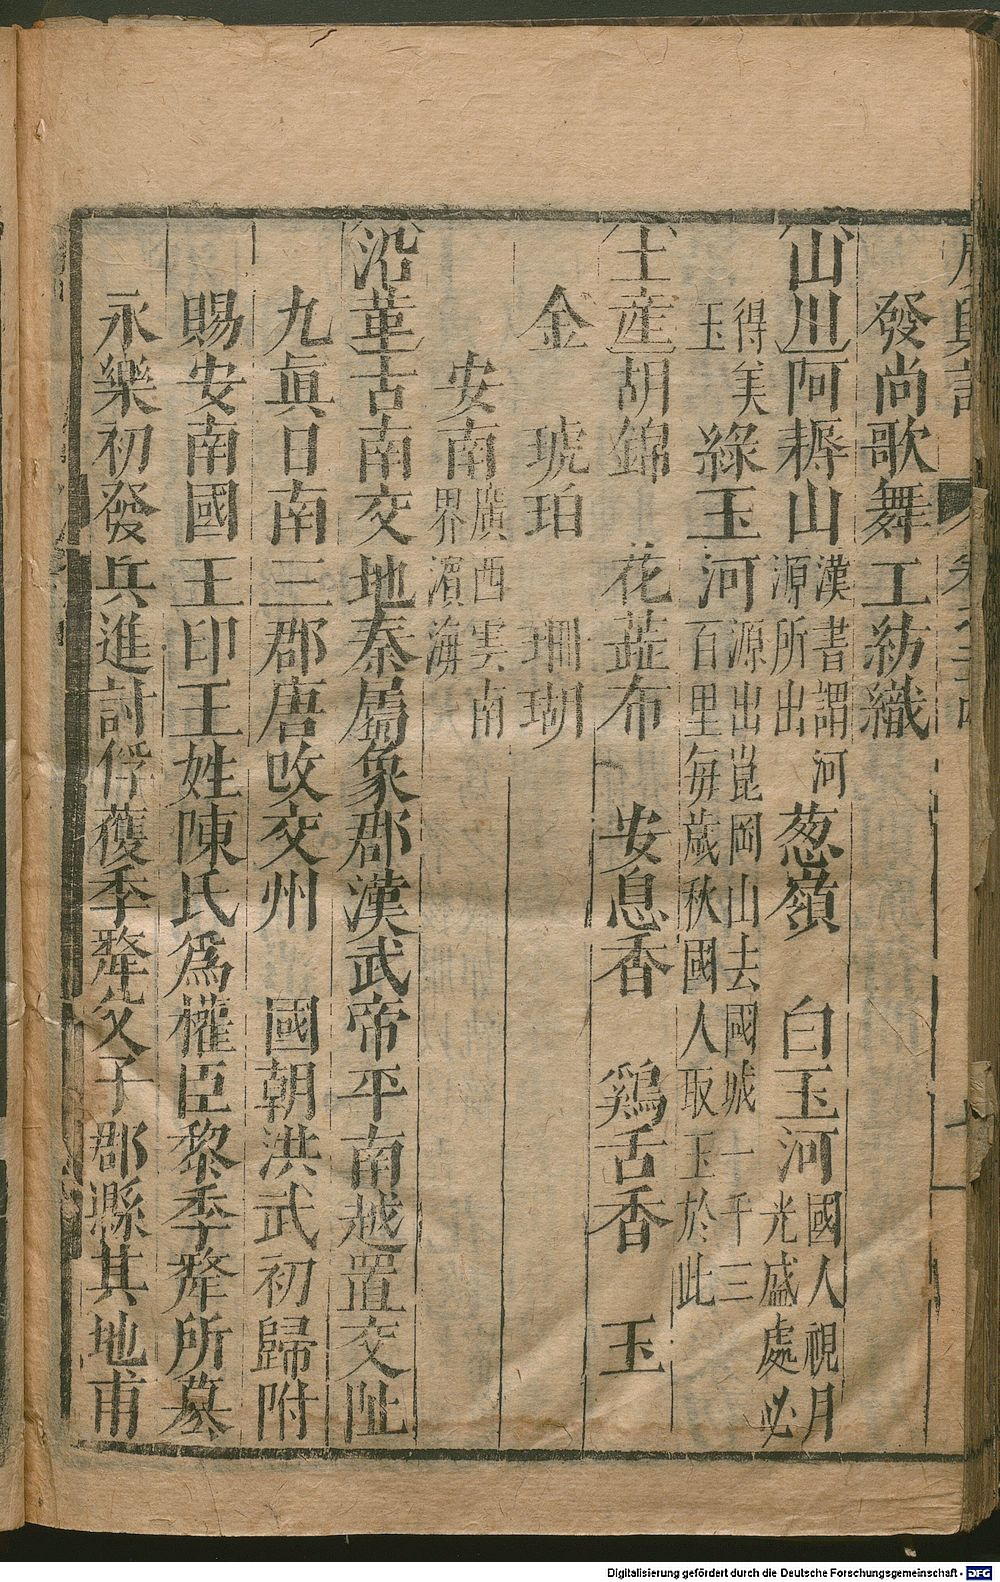 發尚歌舞工紡織
山川阿耨山漢書謂河源所出葱嶺 白玉河國人視月光盛處必
得美玉綠玉河源出崑岡山去國城一千三百里每歲秋國人取玉於此
土產胡錦 花蕋布 安息香 鷄舌香 玉
金 琥珀 珊瑚
安南廣西雲南界濱海
沿革古南交地秦屬象郡漢武帝平南越置交阯
九眞日南三郡唐改交州 國朝洪武初歸附
賜安南國王印王姓陳氏爲權臣黎季犛所
永樂初發兵進討俘獲季犛父子郡縣其地甫
Digitalisierung gefördert durch die Deutsche Forschungsgemeinschaft - DFG